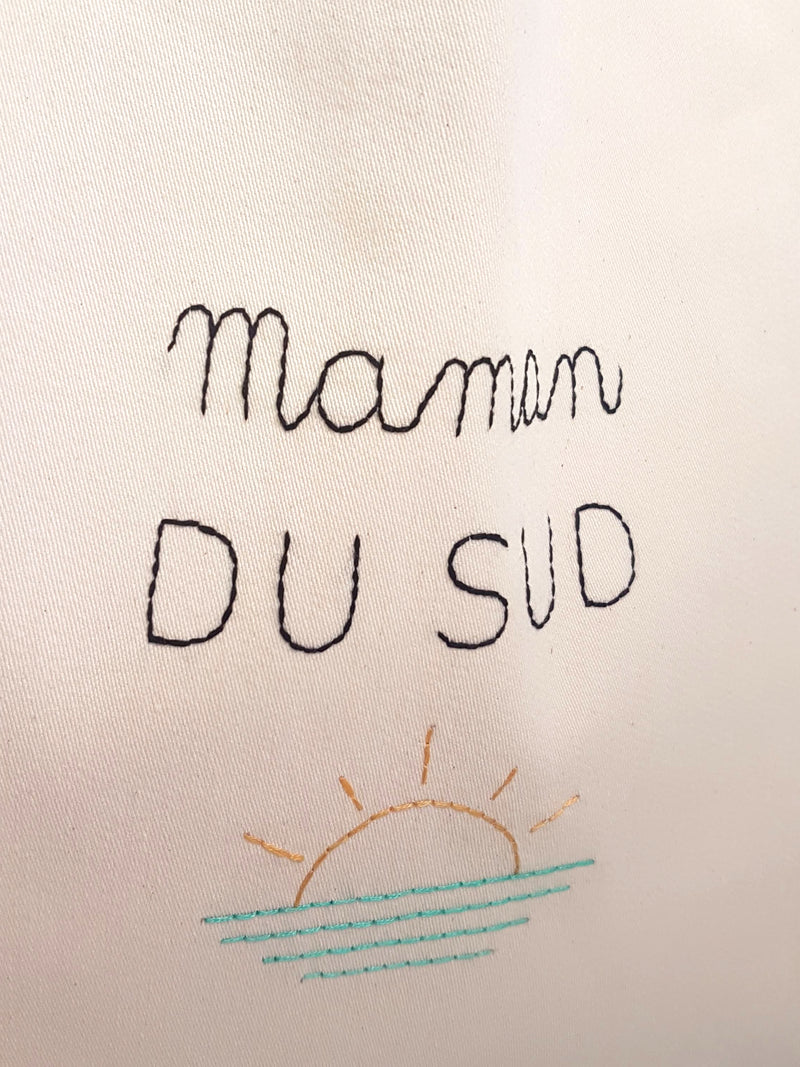 Maman
DU SUD